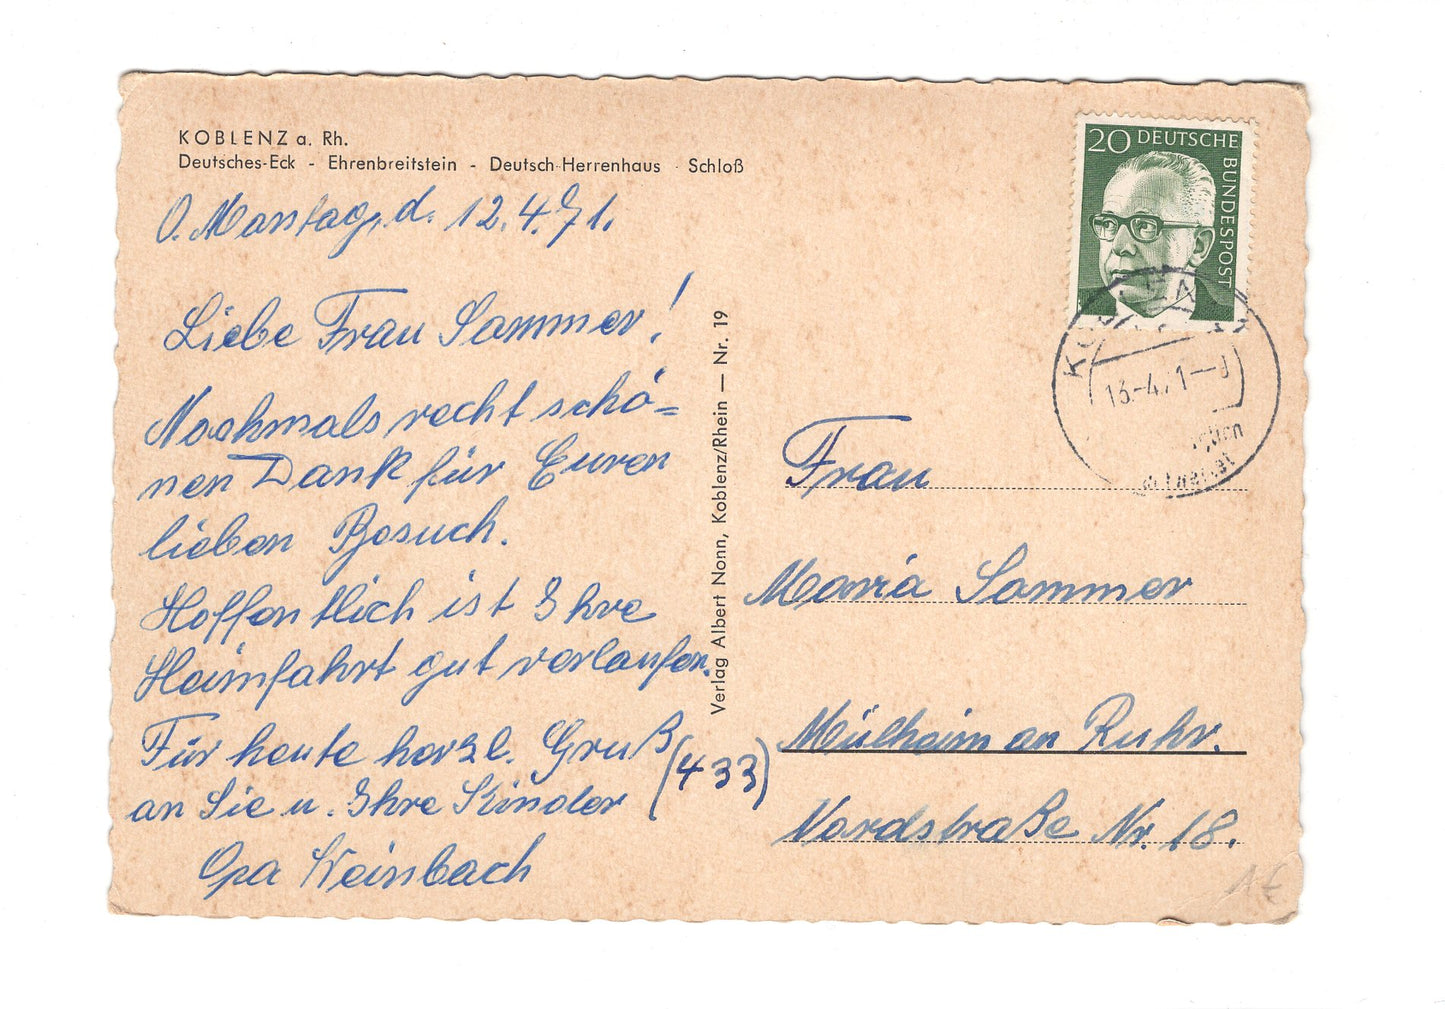 KOBLENZ a. Rh.
Deutsches-Eck - Ehrenbreitstein - Deutsch-Herrenhaus - Schloß
O. Montag, d. 12.4.71.
Liebe Frau Sommer!
Nochmals recht schö=
nen Dank für Euren
lieben Besuch.
Hoffentlich ist Ihre
Heimfahrt gut verlaufen.
Für heute herzl. Gruß
an Sie u. Ihre Kinder
Opa Weinbach
(433)
Verlag Albert Nonn, Koblenz/Rhein — Nr. 19
20 DEUTSCHE
BUNDESPOST
13.-4.71
Frau
Maria Sommer
Mülheim an Ruhr.
Nordstraße Nr. 18.
1 €